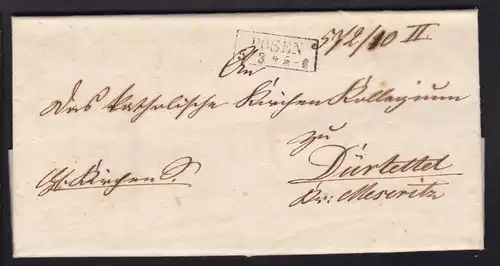 POSEN
3 4
572/10 II.
An
Das katholische Kirchen Kollegium
zu
Dürlettel
Kr: Meseritz
Kirchen S.